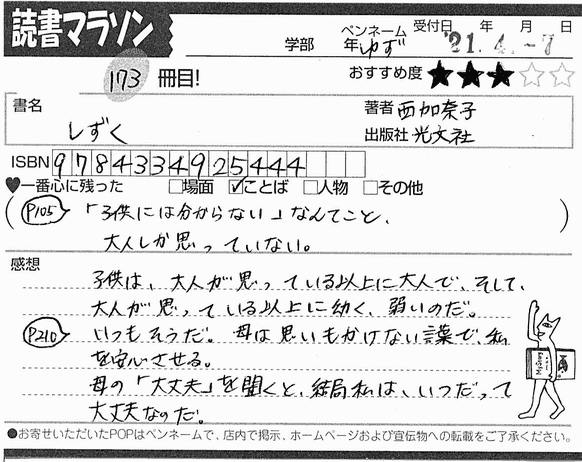 読書マラソン
学部 年 ペンネーム ゆず 受付日 年 月 日 '21. 4. -7
173 冊目! おすすめ度 ★★★☆☆
書名 しずく
著者 西加奈子
出版社 光文社
ISBN 9784334925444
♥一番心に残った □場面 ☑ことば □人物 □その他
(P105 「子供には分からない」なんてこと、)
大人しか思っていない。
感想
子供は、大人が思っている以上に大人で、そして、
大人が思っている以上に幼く、弱いのだ。
P210 いつもそうだ。母は思いもかけない言葉で、私
を安心させる。
母の「大丈夫」を聞くと、結局私は、いつだって
大丈夫なのだ。
●お寄せいただいたPOPはペンネームで、店内で掲示、ホームページおよび宣伝物への転載をご了承ください。